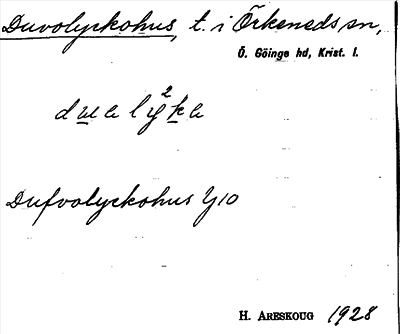 Duvolyckohus, t. i Örkeneds sn,
Ö. Göinge hd, Krist. l.
Dufvolyckohus Y10
H. ARESKOUG 1928